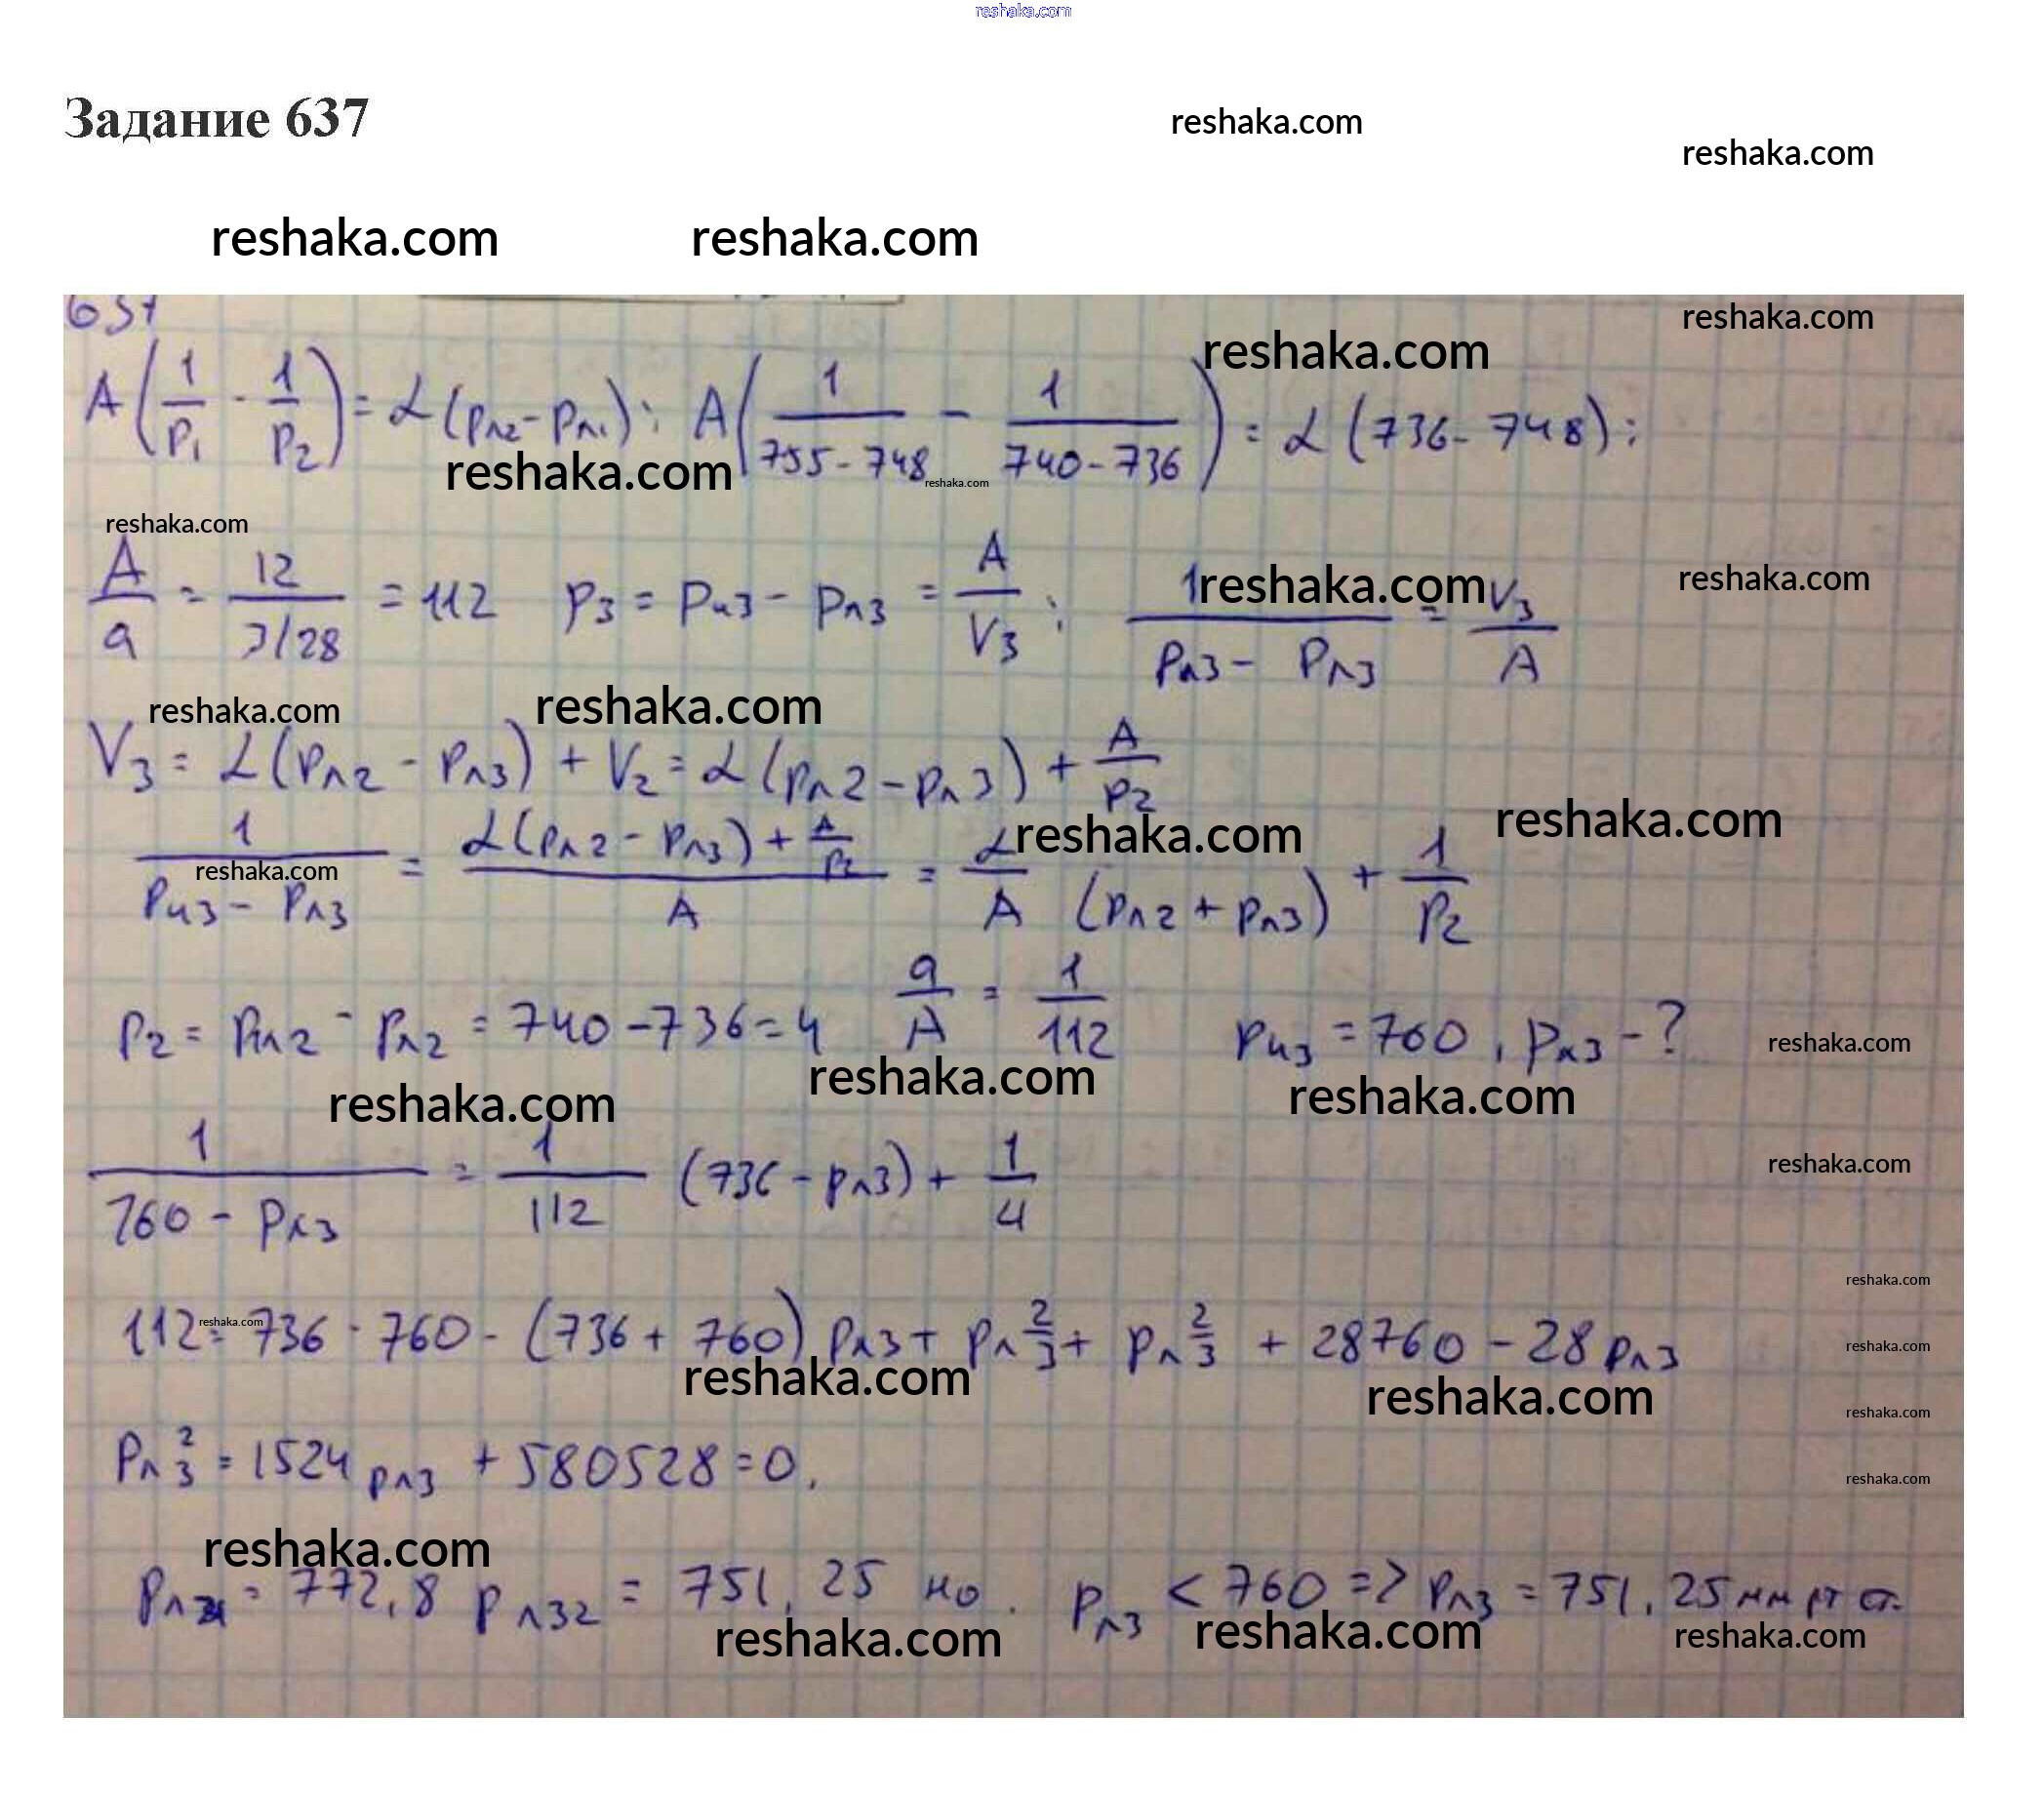 reshaka.com
Задание 637
reshaka.com
reshaka.com
reshaka.com reshaka.com
637
reshaka.com
reshaka.com
A(1/p₁ - 1/p₂) = α(pл₂ - pл₁); A(1/(755-748) - 1/(740-736)) = α(736-748);
reshaka.com
reshaka.com
reshaka.com
A/a = 12/(3/28) = 112 p₃ = pи3 - pл3 = A/V₃; 1/(pи3 - pл3) = V₃/A
reshaka.com
reshaka.com
reshaka.com
reshaka.com
V₃ = α(pл2 - pл3) + V₂ = α(pл2 - pл3) + A/p₂
reshaka.com
reshaka.com
reshaka.com
1/(pи3 - pл3) = (α(pл2 - pл3) + A/p₂)/A = α/A (pл2 + pл3) + 1/p₂
p₂ = pи2 - pл2 = 740 - 736 = 4 a/A = 1/112 pи3 = 760, pл3 - ?
reshaka.com
reshaka.com
reshaka.com
reshaka.com
1/(760 - pл3) = 1/112 (736 - pл3) + 1/4
reshaka.com
reshaka.com
reshaka.com
112 = 736 · 760 - (736 + 760) pл3 + pл²₃ + pл²₃ + 28760 - 28 pл3
reshaka.com
reshaka.com
reshaka.com
reshaka.com
pл²₃ = 1524 pл3 + 580528 = 0.
reshaka.com
reshaka.com
= 772,8 pл32 = 751,25 но. pл3 < 760 => pл3 = 751,25 мм рт ст.
reshaka.com
reshaka.com
reshaka.com